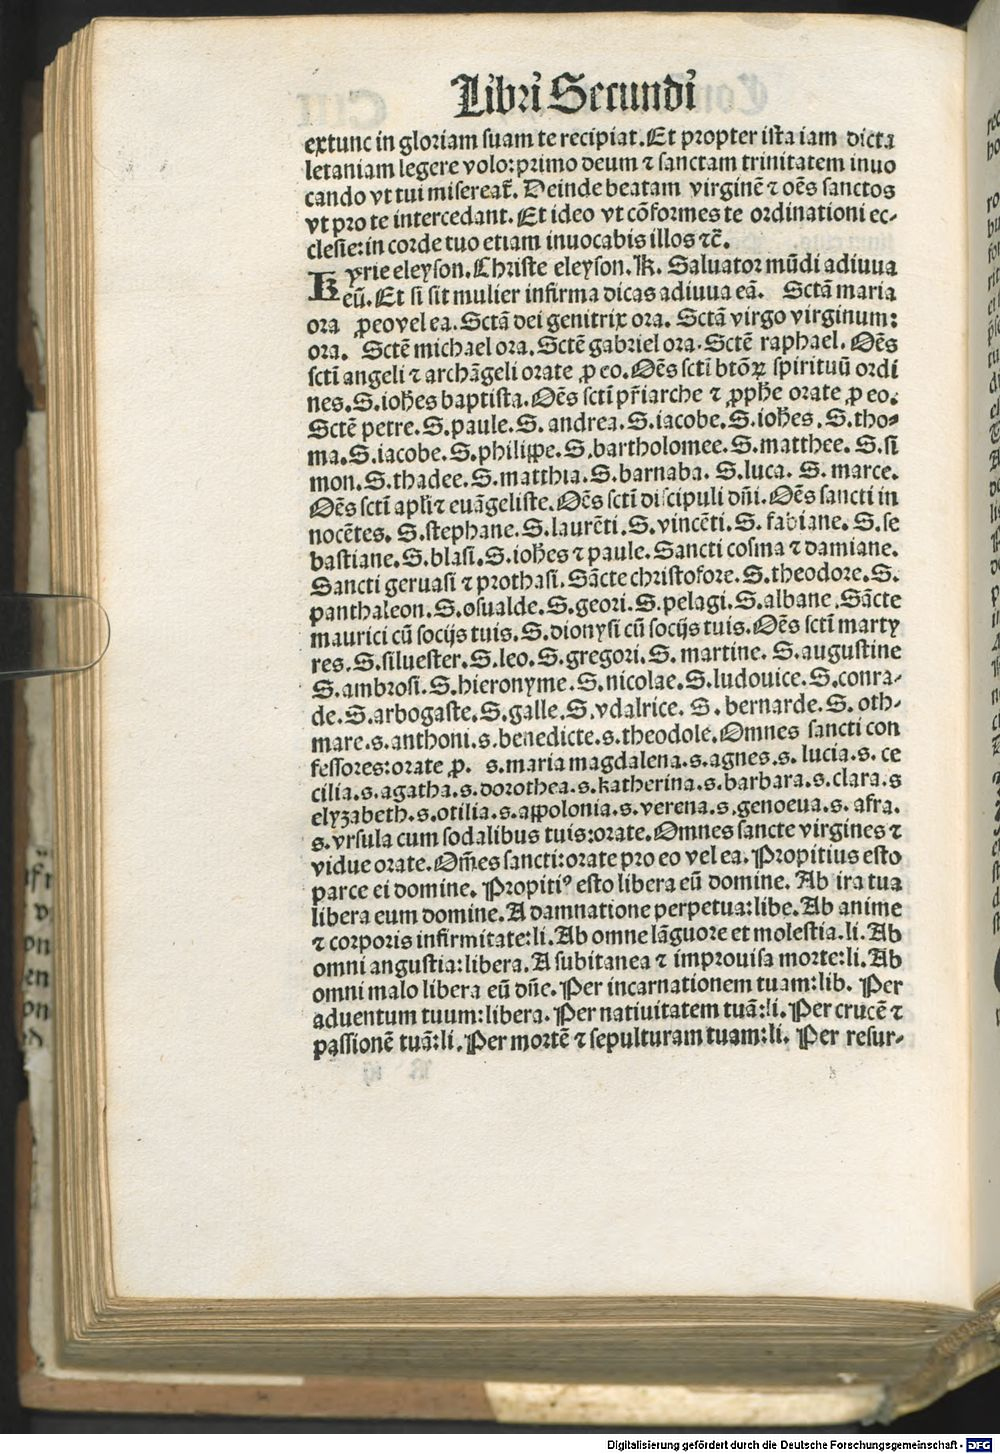 Libri Secundi
extunc in gloriam suam te recipiat. Et propter ista iam dicta
letaniam legere volo: primo deum ⁊ sanctam trinitatem inuo
cando vt tui misereat̃. Deinde beatam virginē ⁊ oēs sanctos
vt pro te intercedant. Et ideo vt cōformes te ordinationi ec-
clesie: in corde tuo etiam inuocabis illos ⁊c̄.
Kyrie eleyson. Christe eleyson. K. Saluator mūdi adiuua
eū. Et si sit mulier infirma dicas adiuua eā. Sctā maria
ora ꝓ eo vel ea. Sctā dei genitrix ora. Sctā virgo virginum:
ora. Sctē michael ora. Sctē gabriel ora. Sctē raphael. Oēs
sctī angeli ⁊ archāgeli orate ꝓ eo. Oēs sctī btōꝝ spirituū ordi
nes. S. ioħes baptista. Oēs sctī pr̄iarche ⁊ ꝓpħe orate ꝓ eo.
Sctē petre. S. paule. S. andrea. S. iacobe. S. ioħes. S. tho-
ma. S. iacobe. S. philippe. S. bartholomee. S. matthee. S. si
mon. S. thadee. S. matthia. S. barnaba. S. luca. S. marce.
Oēs sctī apli ⁊ euāgeliste. Oēs sctī discipuli dn̄i. Oēs sancti in
nocētes. S. stephane. S. laurēti. S. vincēti. S. fabiane. S. se
bastiane. S. blasi. S. ioħes ⁊ paule. Sancti cosma ⁊ damiane.
Sancti geruasi ⁊ prothasi. Sācte christofore. S. theodore. S.
panthaleon. S. osualde. S. geori. S. pelagi. S. albane. Sācte
maurici cū socijs tuis. S. dionysi cū socijs tuis. Oēs sctī marty
res. S. siluester. S. leo. S. gregori. S. martine. S. augustine
S. ambrosi. S. hieronyme. S. nicolae. S. ludouice. S. conra-
de. S. arbogaste. S. galle. S. vdalrice. S. bernarde. S. oth-
mare. s. anthoni. s. benedicte. s. theodole. Omnes sancti con
fessores: orate ꝓ. s. maria magdalena. s. agnes. s. lucia. s. ce
cilia. s. agatha. s. dorothea. s. katherina. s. barbara. s. clara. s
elyzabeth. s. otilia. s. appolonia. s. verena. s. genoeua. s. afra.
s. vrsula cum sodalibus tuis: orate. Omnes sancte virgines ⁊
vidue orate. Om̄es sancti: orate pro eo vel ea. Propitius esto
parce ei domine. Propitiꝰ esto libera eū domine. Ab ira tua
libera eum domine. A damnatione perpetua: libe. Ab anime
⁊ corporis infirmitate: li. Ab omne lāguore et molestia. li. Ab
omni angustia: libera. A subitanea ⁊ improuisa morte: li. Ab
omni malo libera eū dn̄e. Per incarnationem tuam: lib. Per
aduentum tuum: libera. Per natiuitatem tuā: li. Per crucē ⁊
passionē tuā: li. Per mortē ⁊ sepulturam tuam: li. Per resur-
Digitalisierung gefördert durch die Deutsche Forschungsgemeinschaft - DFG